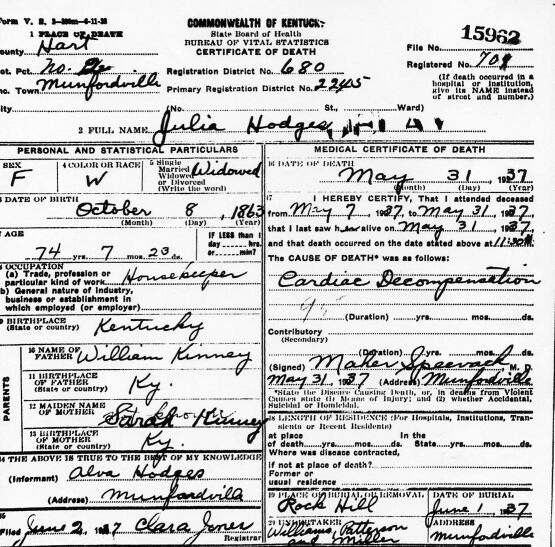 Form V. S.
1 PLACE OF DEATH
County Hart
Vot. Pct. No. 2
Inc. Town Munfordville
City
COMMONWEALTH OF KENTUCKY
State Board of Health
BUREAU OF VITAL STATISTICS
CERTIFICATE OF DEATH
Registration District No. 680
Primary Registration District No. 2245
(No. St., Ward)
File No. 15962
Registered No. 701
(If death occurred in a hospital or institution, give its NAME instead of street and number.)
2 FULL NAME Julia Hodges
PERSONAL AND STATISTICAL PARTICULARS
SEX F
4 COLOR OR RACE W
5 Single Married Widowed or Divorced (Write the word) Widowed
DATE OF BIRTH
October 8, 1863
(Month) (Day) (Year)
AGE
74 yrs. 7 mos. 23 ds.
IF LESS than 1 day hrs. or min.?
8 OCCUPATION
(a) Trade, profession or particular kind of work Housekeeper
b) General nature of industry, business or establishment in which employed (or employer)
9 BIRTHPLACE (State or country) Kentucky
PARENTS
10 NAME OF FATHER William Kinney
11 BIRTHPLACE OF FATHER (State or country) Ky.
12 MAIDEN NAME OF MOTHER Sarah Kinney
13 BIRTHPLACE OF MOTHER (State or country) Ky.
14 THE ABOVE IS TRUE TO THE BEST OF MY KNOWLEDGE
(Informant) Alva Hodges
(Address) Munfordville
15
Filed June 2, 1937 Clara Jones
Registrar
MEDICAL CERTIFICATE OF DEATH
16 DATE OF DEATH
May 31, 1937
(Month) (Day) (Year)
17 I HEREBY CERTIFY, That I attended deceased
from May 7 1937, to May 31 1937,
that I last saw her alive on May 31, 1937,
and that death occurred on the date stated above at 11:30 M.
The CAUSE OF DEATH* was as follows:
Cardiac Decompensation
95
(Duration) yrs. mos. ds.
Contributory
(Secondary)
(Duration) yrs. mos. ds.
(Signed) Maher Speevack M. D.
May 31 1937 (Address) Munfordville
*State the Disease Causing Death, or, in deaths from Violent
Causes state (1) Means of Injury; and (2) whether Accidental,
Suicidal or Homicidal.
18 LENGTH OF RESIDENCE (For Hospitals, Institutions, Transients or Recent Residents)
at place of death yrs. mos. ds. In the State yrs. mos. ds.
Where was disease contracted,
if not at place of death?
Former or
usual residence
19 PLACE OF BURIAL OR REMOVAL Rock Hill
DATE OF BURIAL June 1, 1937
20 UNDERTAKER Williams, Patterson and Miller
ADDRESS Munfordville